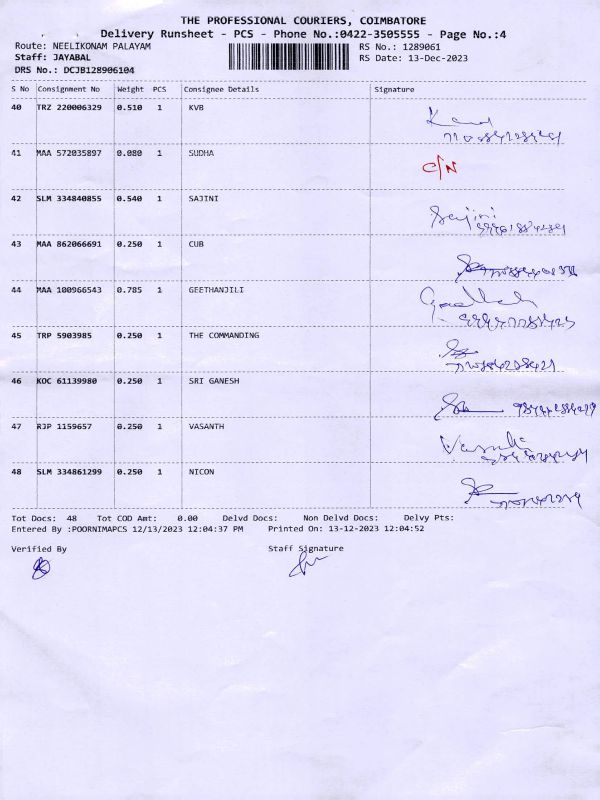 THE PROFESSIONAL COURIERS, COIMBATORE
Delivery Runsheet - PCS - Phone No.:0422-3505555 - Page No.:4
Route: NEELIKONAM PALAYAM
RS No.: 1289061
Staff: JAYABAL
RS Date: 13-Dec-2023
DRS No.: DCJB128906104
S No Consignment No Weight PCS Consignee Details Signature
40 TRZ 220006329 0.510 1 KVB
41 MAA 572035897 0.080 1 SUDHA C/N
42 SLM 334840855 0.540 1 SAJINI Sajini
43 MAA 862066691 0.250 1 CUB
44 MAA 100966543 0.785 1 GEETHANJILI
45 TRP 5903985 0.250 1 THE COMMANDING
46 KOC 61139980 0.250 1 SRI GANESH
47 RJP 1159657 0.250 1 VASANTH
48 SLM 334861299 0.250 1 NICON
Tot Docs: 48 Tot COD Amt: 0.00 Delvd Docs: Non Delvd Docs: Delvy Pts:
Entered By :POORNIMAPCS 12/13/2023 12:04:37 PM Printed On: 13-12-2023 12:04:52
Verified By Staff Signature